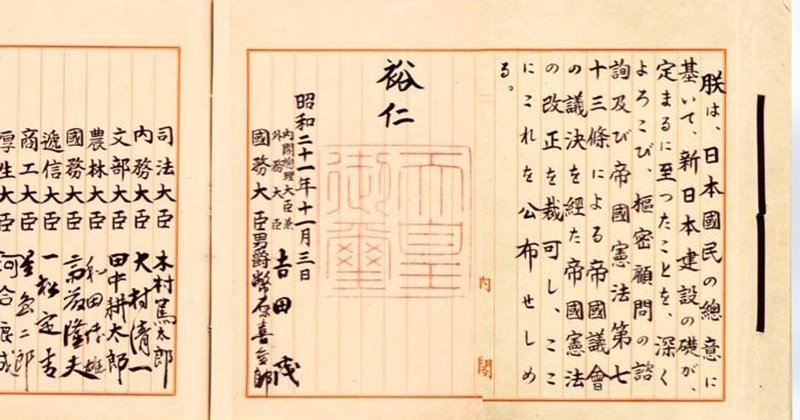 朕は、日本國民の總意に
基いて、新日本建設の礎が、
定まるに至つたことを、深く
よろこび、樞密顧問の諮
詢及び帝國憲法第七
十三條による帝國議會
の議決を経た帝國憲法
の改正を裁可し、ここ
にこれを公布せしめ
る。
内閣
裕仁
天皇
御璽
昭和二十一年十一月三日
内閣總理大臣兼
外務大臣 吉田茂
國務大臣 男爵幣原喜重郎
司法大臣 木村篤太郎
内務大臣 大村清一
文部大臣 田中耕太郎
農林大臣 和田博雄
國務大臣 斎藤隆夫
遞信大臣 一松定吉
商工大臣 星島二郎
厚生大臣 河合良成